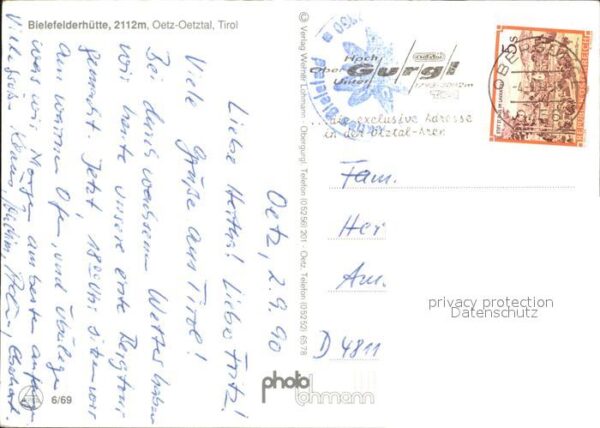 Bielefelderhütte, 2112m, Oetz-Oetztal, Tirol
Oetz, 2.9.90
Liebe Herta! Liebe Fritz!
Viele Grüße aus Tirol!
Bei durchwachsenem Wetter haben
wir heute unsere erste Bergtour
gemacht. Jetzt, 18°° Uhr sitzen wir
am warmen Ofen, und überlegen
was wir Morgen am besten anfangen.
Viele Grüße
6/69
© Verlag Werner Lohmann · Obergurgl, Telefon (05256) 201 · Oetz, Telefon (05252) 6578
photo
Lohmann
Hoch
Ober Gurgl
Unter
...die exclusive Adresse
in den Ötztal-Aren
5 S
REPUBLIK ÖSTERREICH
Fam.
Her
Am.
D 4811
privacy protection
Datenschutz